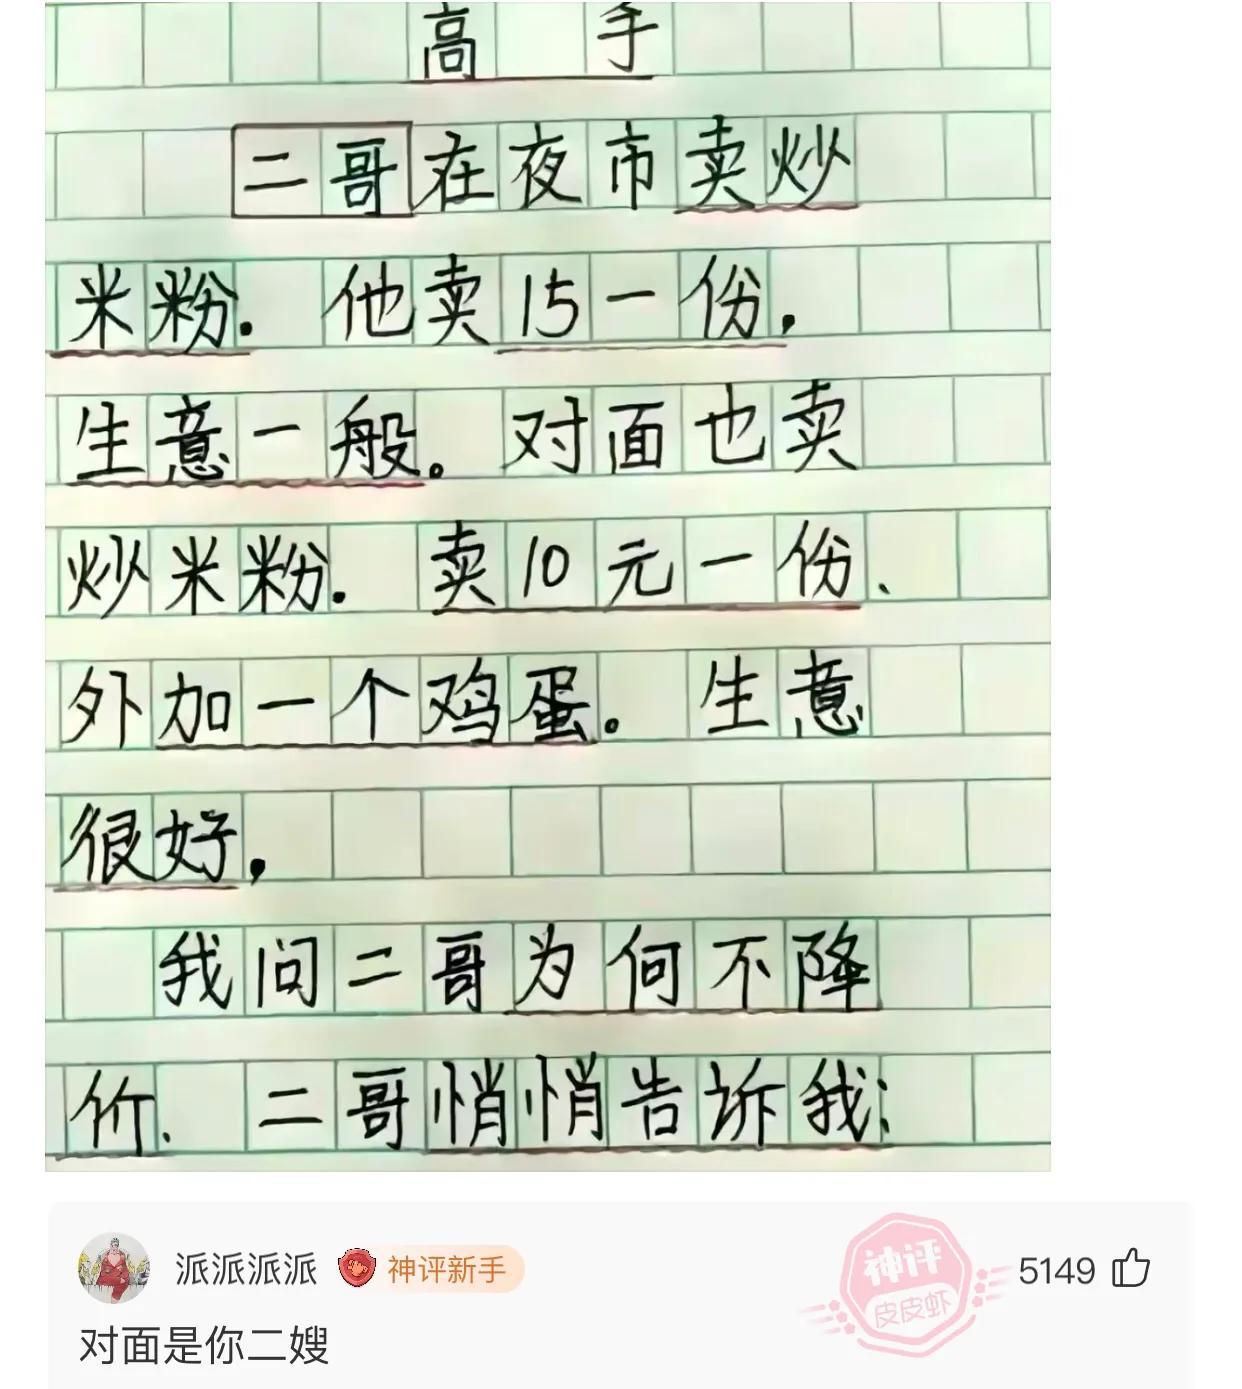 高手
二哥在夜市卖炒
米粉. 他卖15一份,
生意一般。对面也卖
炒米粉. 卖10元一份、
外加一个鸡蛋。生意
很好,
我问二哥为何不降
价. 二哥悄悄告诉我:
派派派派 神评新手 神评 皮皮虾 5149
对面是你二嫂